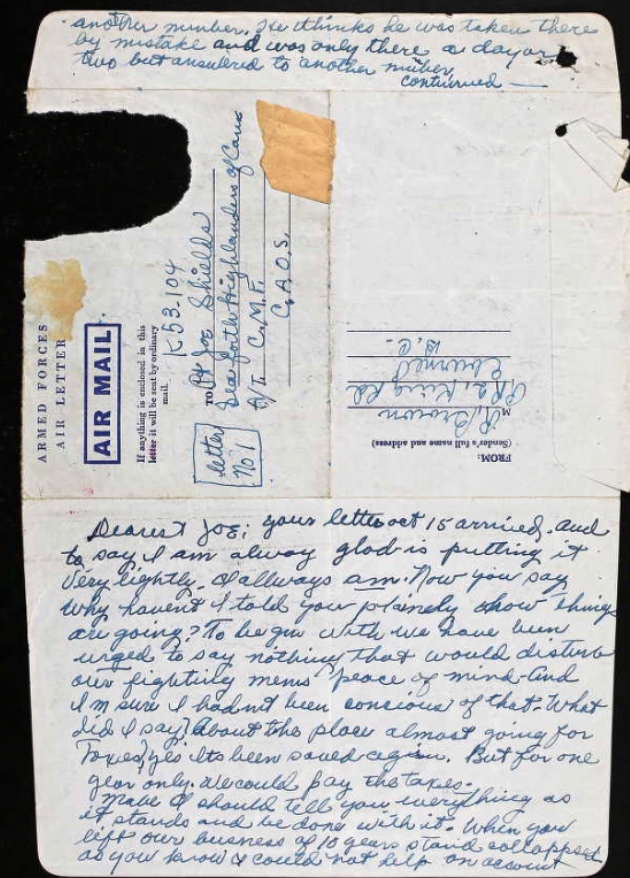 another number. He thinks he was taken there
by mistake and was only there a day or
two but answered to another number
continued —
ARMED FORCES
AIR LETTER
AIR MAIL
If anything is enclosed in this
letter it will be sent by ordinary
mail.
K53-104
TO Pt Joe Shields
Seaforth Highlanders of Can
C.M.F.
C.A.O.S.
letter
No 1
FROM:
(Sender's full name and address)
M
Brown
King Rd
B.C.
Dearest Joe; your letter oct 15 arrived. and
to say I am alway glad is putting it
very lightly. I allways am. Now you say
why havent I told you plainely how things
are going? To begin with we have been
urged to say nothing that would disturb
our fighting mens peace of mind and
I'm sure I hadn't been conscious of that. What
did I say? About the place almost going for
Taxes, yes its been saved again. But for one
year only. We could pay the taxes.
Mabe I should tell you everything as
it stands and be done with it. When you
left our business of 10 years stand collapsed
as you know & could not help on account